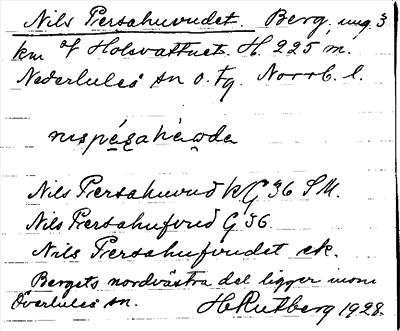 Nils Persahuvudet. Berg, ung. 3
km af Holsvattnet. H. 225 m.
Nederluleå sn o. tg. Norrb. l.
Nils Persahuvud k G 36 S.M.
Nils Persahufvud G 36.
Nils Persahufvudet ek.
Bergets nordvästra del ligger inom
Överluleå sn. H. Rutberg 1928.